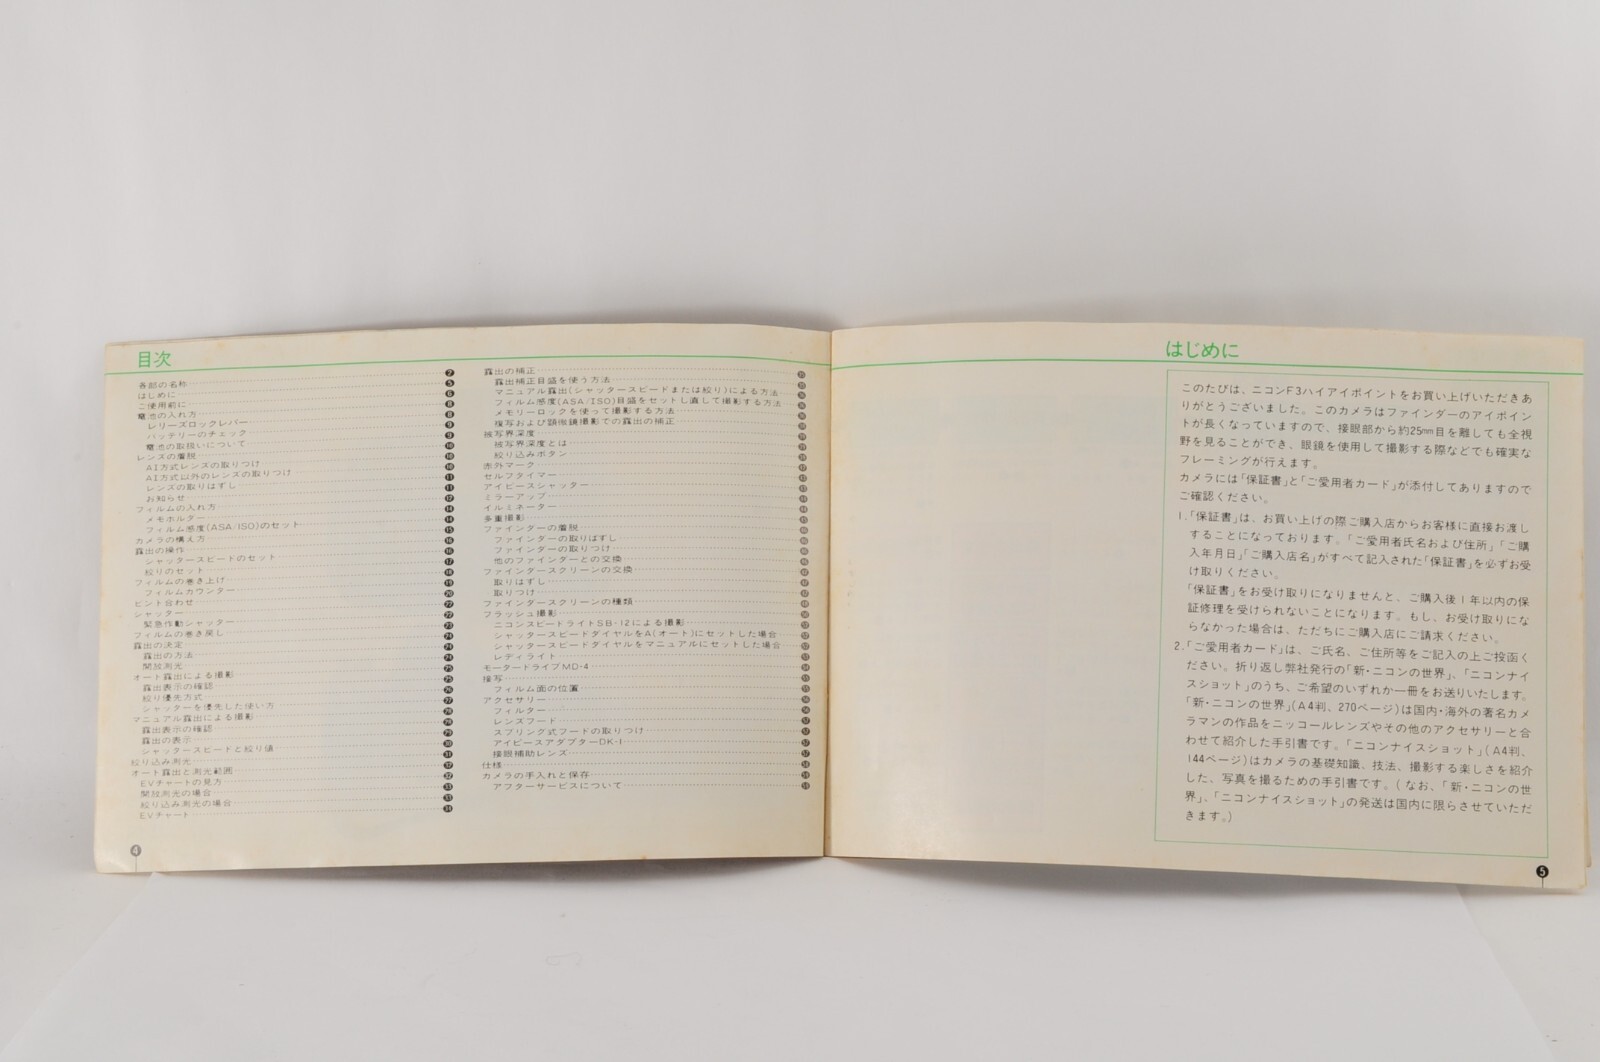 目次
各部の名称
はじめに
ご使用前に
電池の入れ方
レリーズロックレバー
バッテリーのチェック
電池の取扱いについて
レンズの着脱
AI方式レンズの取りつけ
AI方式以外のレンズの取りつけ
レンズの取りはずし
お知らせ
フィルムの入れ方
メモホルダー
フィルム感度(ASA/ISO)のセット
カメラの構え方
露出の操作
シャッタースピードのセット
絞りのセット
フィルムの巻き上げ
フィルムカウンター
ピント合わせ
シャッター
緊急作動シャッター
フィルムの巻き戻し
露出の決定
露出の方法
開放測光
オート露出による撮影
露出表示の確認
絞り優先方式
シャッターを優先した使い方
マニュアル露出による撮影
露出表示の確認
露出の表示
シャッタースピードと絞り値
絞り込み測光
オート露出と測光範囲
EVチャートの見方
開放測光の場合
絞り込み測光の場合
EVチャート
露出の補正
露出補正目盛を使う方法
マニュアル露出(シャッタースピードまたは絞り)による方法
フィルム感度(ASA/ISO)目盛をセットし直して撮影する方法
メモリーロックを使って撮影する方法
複写および顕微鏡撮影での露出の補正
被写界深度
被写界深度とは
絞り込みボタン
赤外マーク
セルフタイマー
アイピースシャッター
ミラーアップ
イルミネーター
多重撮影
ファインダーの着脱
ファインダーの取りはずし
ファインダーの取りつけ
他のファインダーとの交換
ファインダースクリーンの交換
取りはずし
取りつけ
ファインダースクリーンの種類
フラッシュ撮影
ニコンスピードライトSB-12による撮影
シャッタースピードダイヤルをA(オート)にセットした場合
シャッタースピードダイヤルをマニュアルにセットした場合
レディライト
モータードライブMD-4
接写
フィルム面の位置
アクセサリー
フィルター
レンズフード
スプリング式フードの取りつけ
アイピースアダプターDK-1
接眼補助レンズ
仕様
カメラの手入れと保存
アフターサービスについて
4
はじめに
このたびは、ニコンF3ハイアイポイントをお買い上げいただきあ
りがとうございました。このカメラはファインダーのアイポイン
トが長くなっていますので、接眼部から約25mm目を離しても全視
野を見ることができ、眼鏡を使用して撮影する際などでも確実な
フレーミングが行えます。
カメラには「保証書」と「ご愛用者カード」が添付してありますので
ご確認ください。
1.「保証書」は、お買い上げの際ご購入店からお客様に直接お渡し
することになっております。「ご愛用者氏名および住所」「ご購
入年月日」「ご購入店名」がすべて記入された「保証書」を必ずお受
け取りください。
「保証書」をお受け取りになりませんと、ご購入後1年以内の保
証修理を受けられないことになります。もし、お受け取りにな
らなかった場合は、ただちにご購入店にご請求ください。
2.「ご愛用者カード」は、ご氏名、ご住所等をご記入の上ご投函く
ださい。折り返し弊社発行の「新・ニコンの世界」、「ニコンナイ
スショット」のうち、ご希望のいずれか一冊をお送りいたします。
「新・ニコンの世界」(A4判、270ページ)は国内・海外の著名カメ
ラマンの作品をニッコールレンズやその他のアクセサリーと合
わせて紹介した手引書です。「ニコンナイスショット」(A4判、
144ページ)はカメラの基礎知識、技法、撮影する楽しさを紹介
した、写真を撮るための手引書です。(なお、「新・ニコンの世
界」、「ニコンナイスショット」の発送は国内に限らさせていただ
きます。)
5